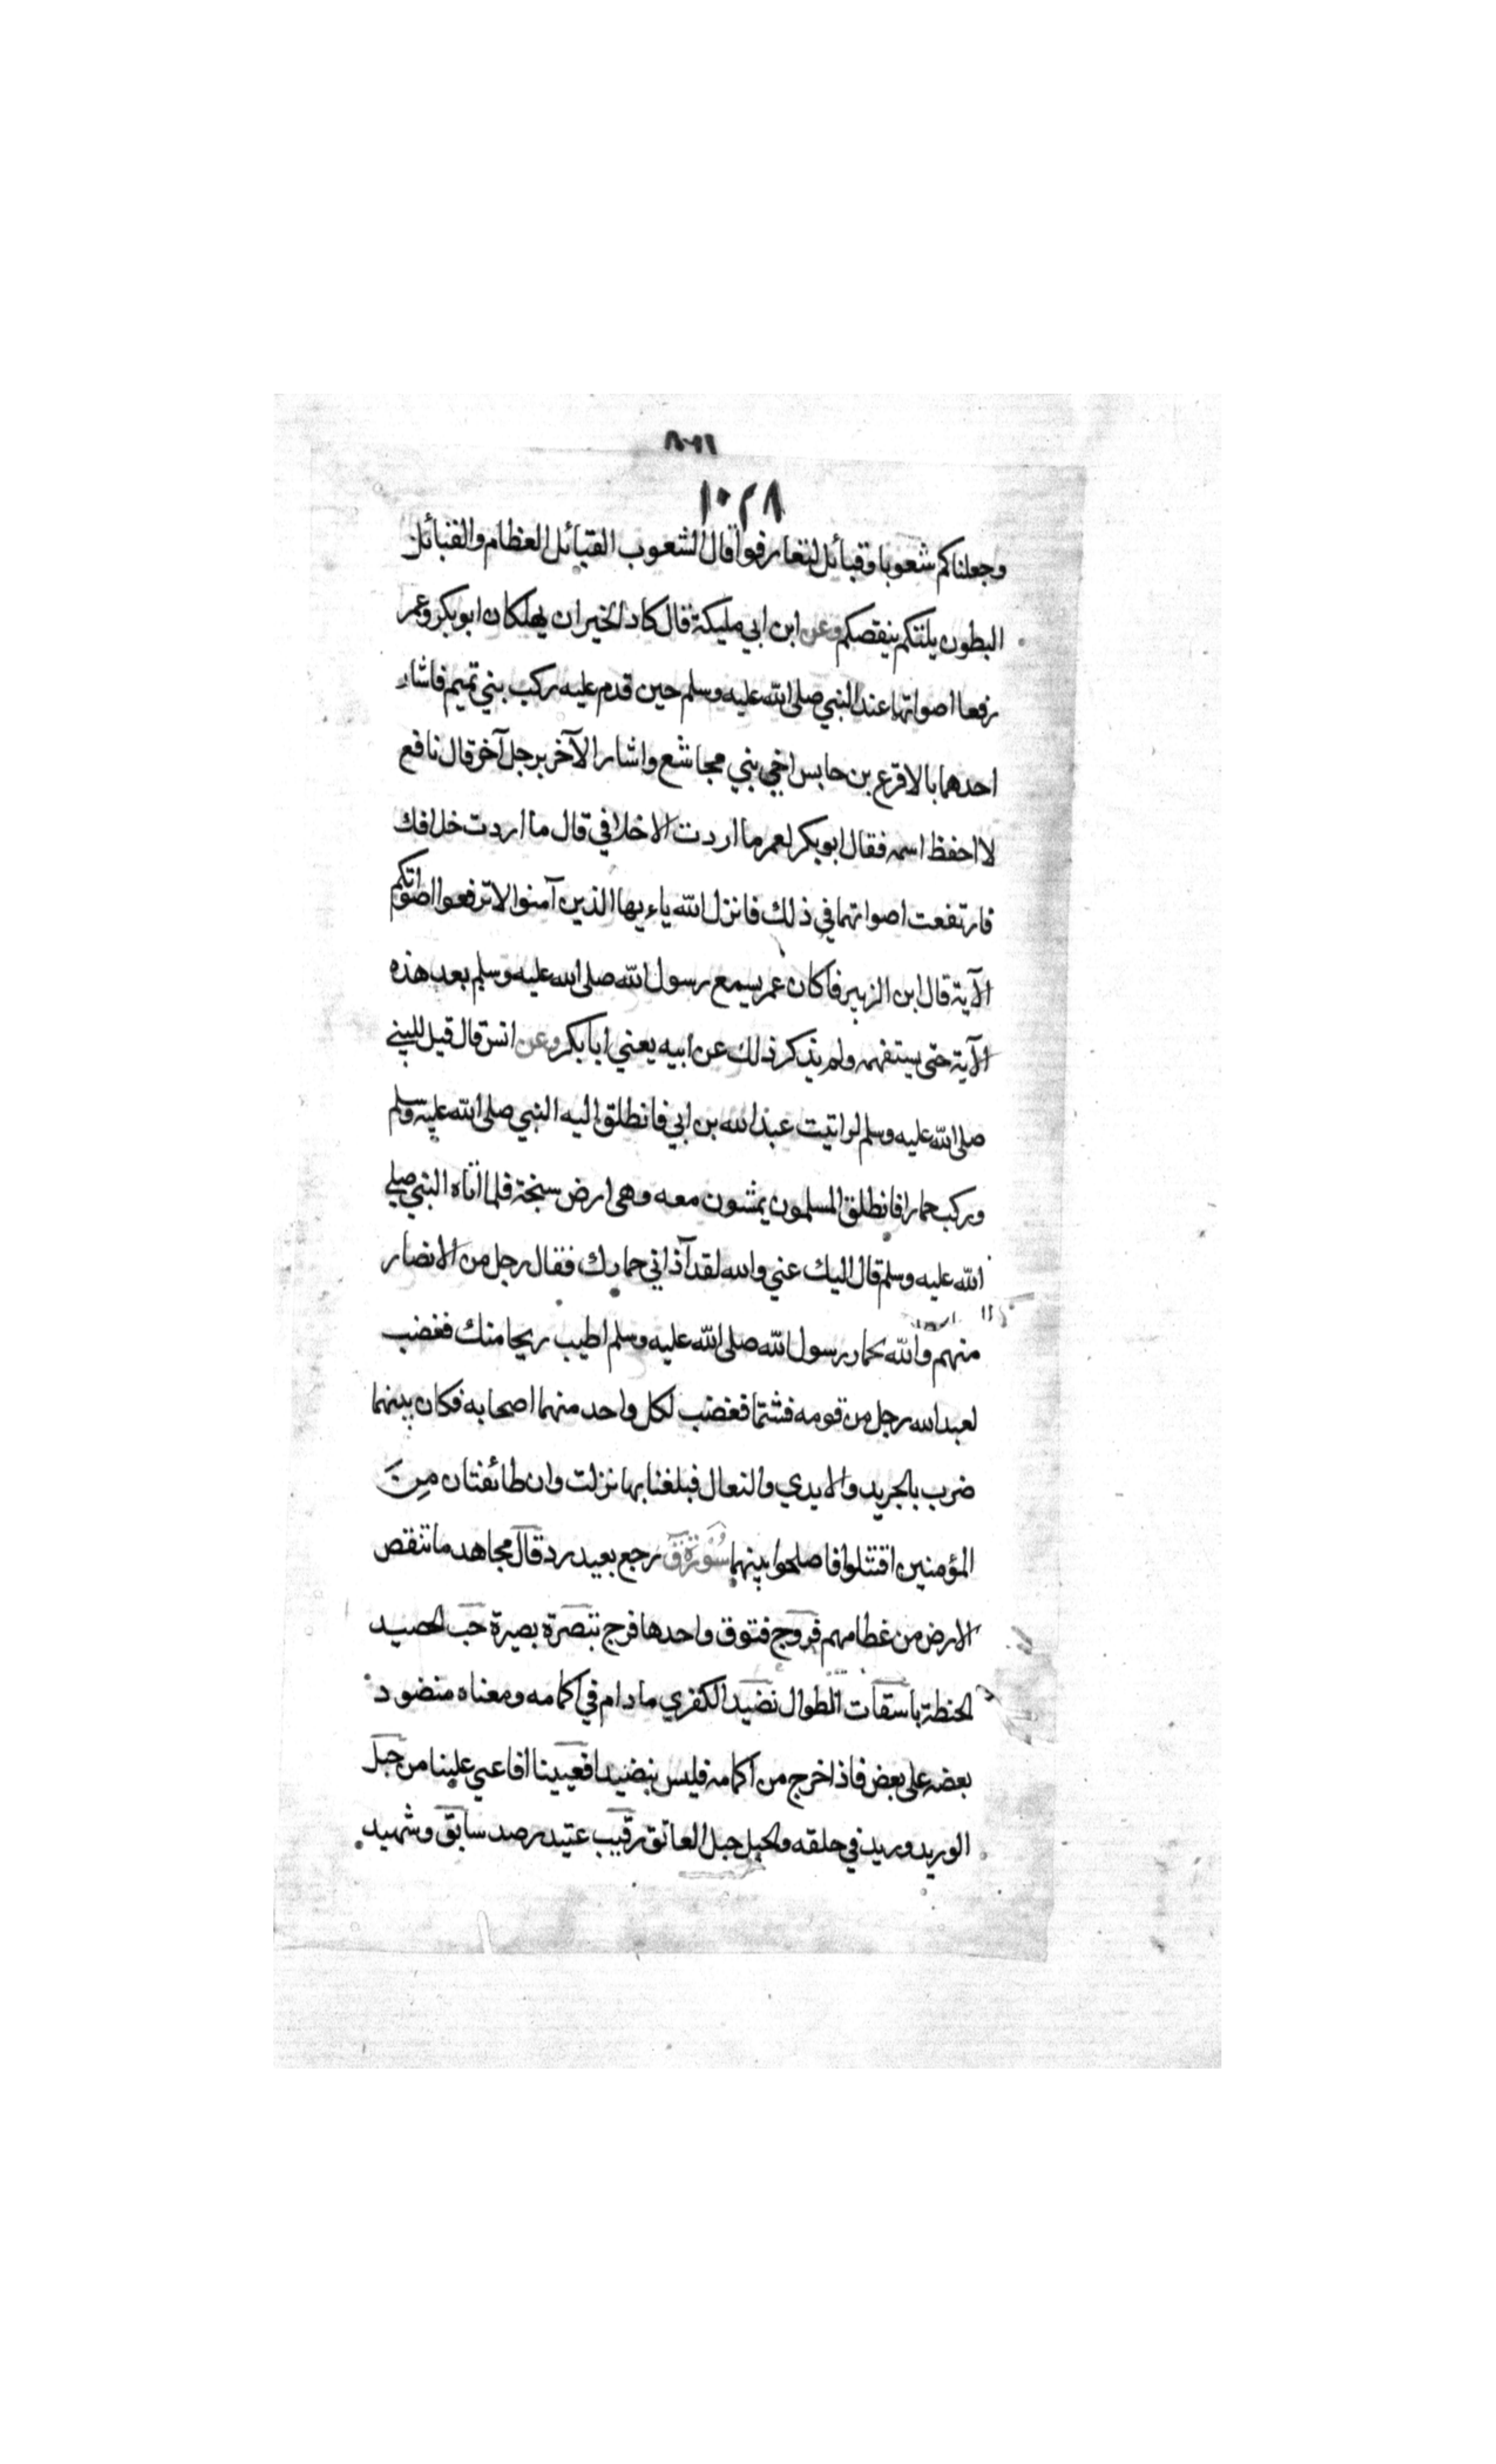 ١٠٢٨
وجعلناكم شعوبا وقبائل لتعارفوا قال الشعوب القبائل العظام والقبائل
البطون يلتكم ينقصكم وعن ابن ابي مليكة قال كاد الخيران يهلكان ابو بكر وعمر
رفعا اصواتهما عند النبي صلى الله عليه وسلم حين قدم عليه ركب بني تميم فاشار
احدهما بالاقرع بن حابس اخي بني مجاشع واشار الآخر برجل آخر قال نافع
لا احفظ اسمه فقال ابو بكر لعمر ما اردت الا خلافي قال ما اردت خلافك
فارتفعت اصواتهما في ذلك فانزل الله ياءيها الذين آمنوا لا ترفعوا اصواتكم
الآية قال ابن الزبير فما كان عمر يسمع رسول الله صلى الله عليه وسلم بعد هذه
الآية حتى يستفهمه ولم يذكر ذلك عن ابيه يعني ابا بكر وعن انس قال قيل للنبي
صلى الله عليه وسلم لو اتيت عبد الله بن ابي فانطلق اليه النبي صلى الله عليه وسلم
وركب حمارا فانطلق المسلمون يمشون معه وهي ارض سبخة فلما اتاه النبي صلى
الله عليه وسلم قال اليك عني والله لقد آذاني حمارك فقال رجل من الانصار
منهم والله لحمار رسول الله صلى الله عليه وسلم اطيب ريحا منك فغضب
لعبد الله رجل من قومه فشتما فغضب لكل واحد منهما اصحابه فكان بينهما
ضرب بالجريد والايدي والنعال فبلغنا بها نزلت وان طائفتان من
المؤمنين اقتتلوا فاصلحوا بينهما سورة ق رجع بعيد رد قال مجاهد ما تنقص
الارض من عظامهم فروج فتوق واحدها فرج تبصرة بصيرة حب الحصيد
الحنطة باسقات الطوال نضيد الكفري ما دام في اكمامه ومعناه منضود
بعضه على بعض فاذا خرج من اكمامه فليس بنضيد افعيينا افاعي علينا من حبل
الوريد وريد في حلقه والحبل حبل العاتق رقيب عتيد رصد سابق وشهيد